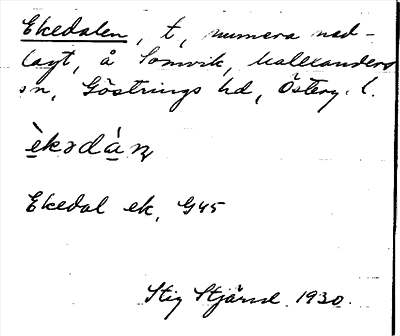 Ekedalen, t, numera ned-
lagt, å Somvik, Malexanders
sn, Göstrings hd, Österg. l.
èkədàn
Ekedal ek, G45
Stig Stjärne 1930.